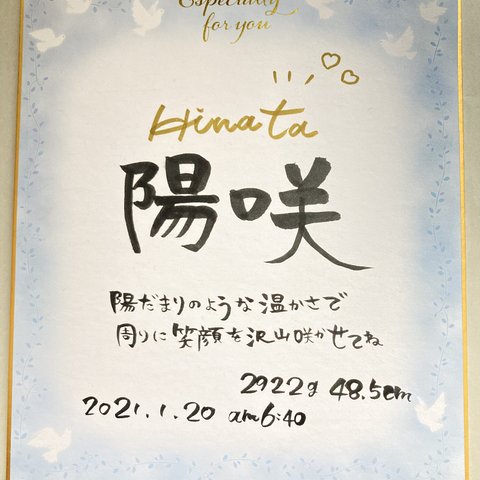 Especially
for you
Hinata
陽咲
陽だまりのような温かさで
周りに笑顔を沢山咲かせてね
2922g 48.5cm
2021.1.20 am6:40